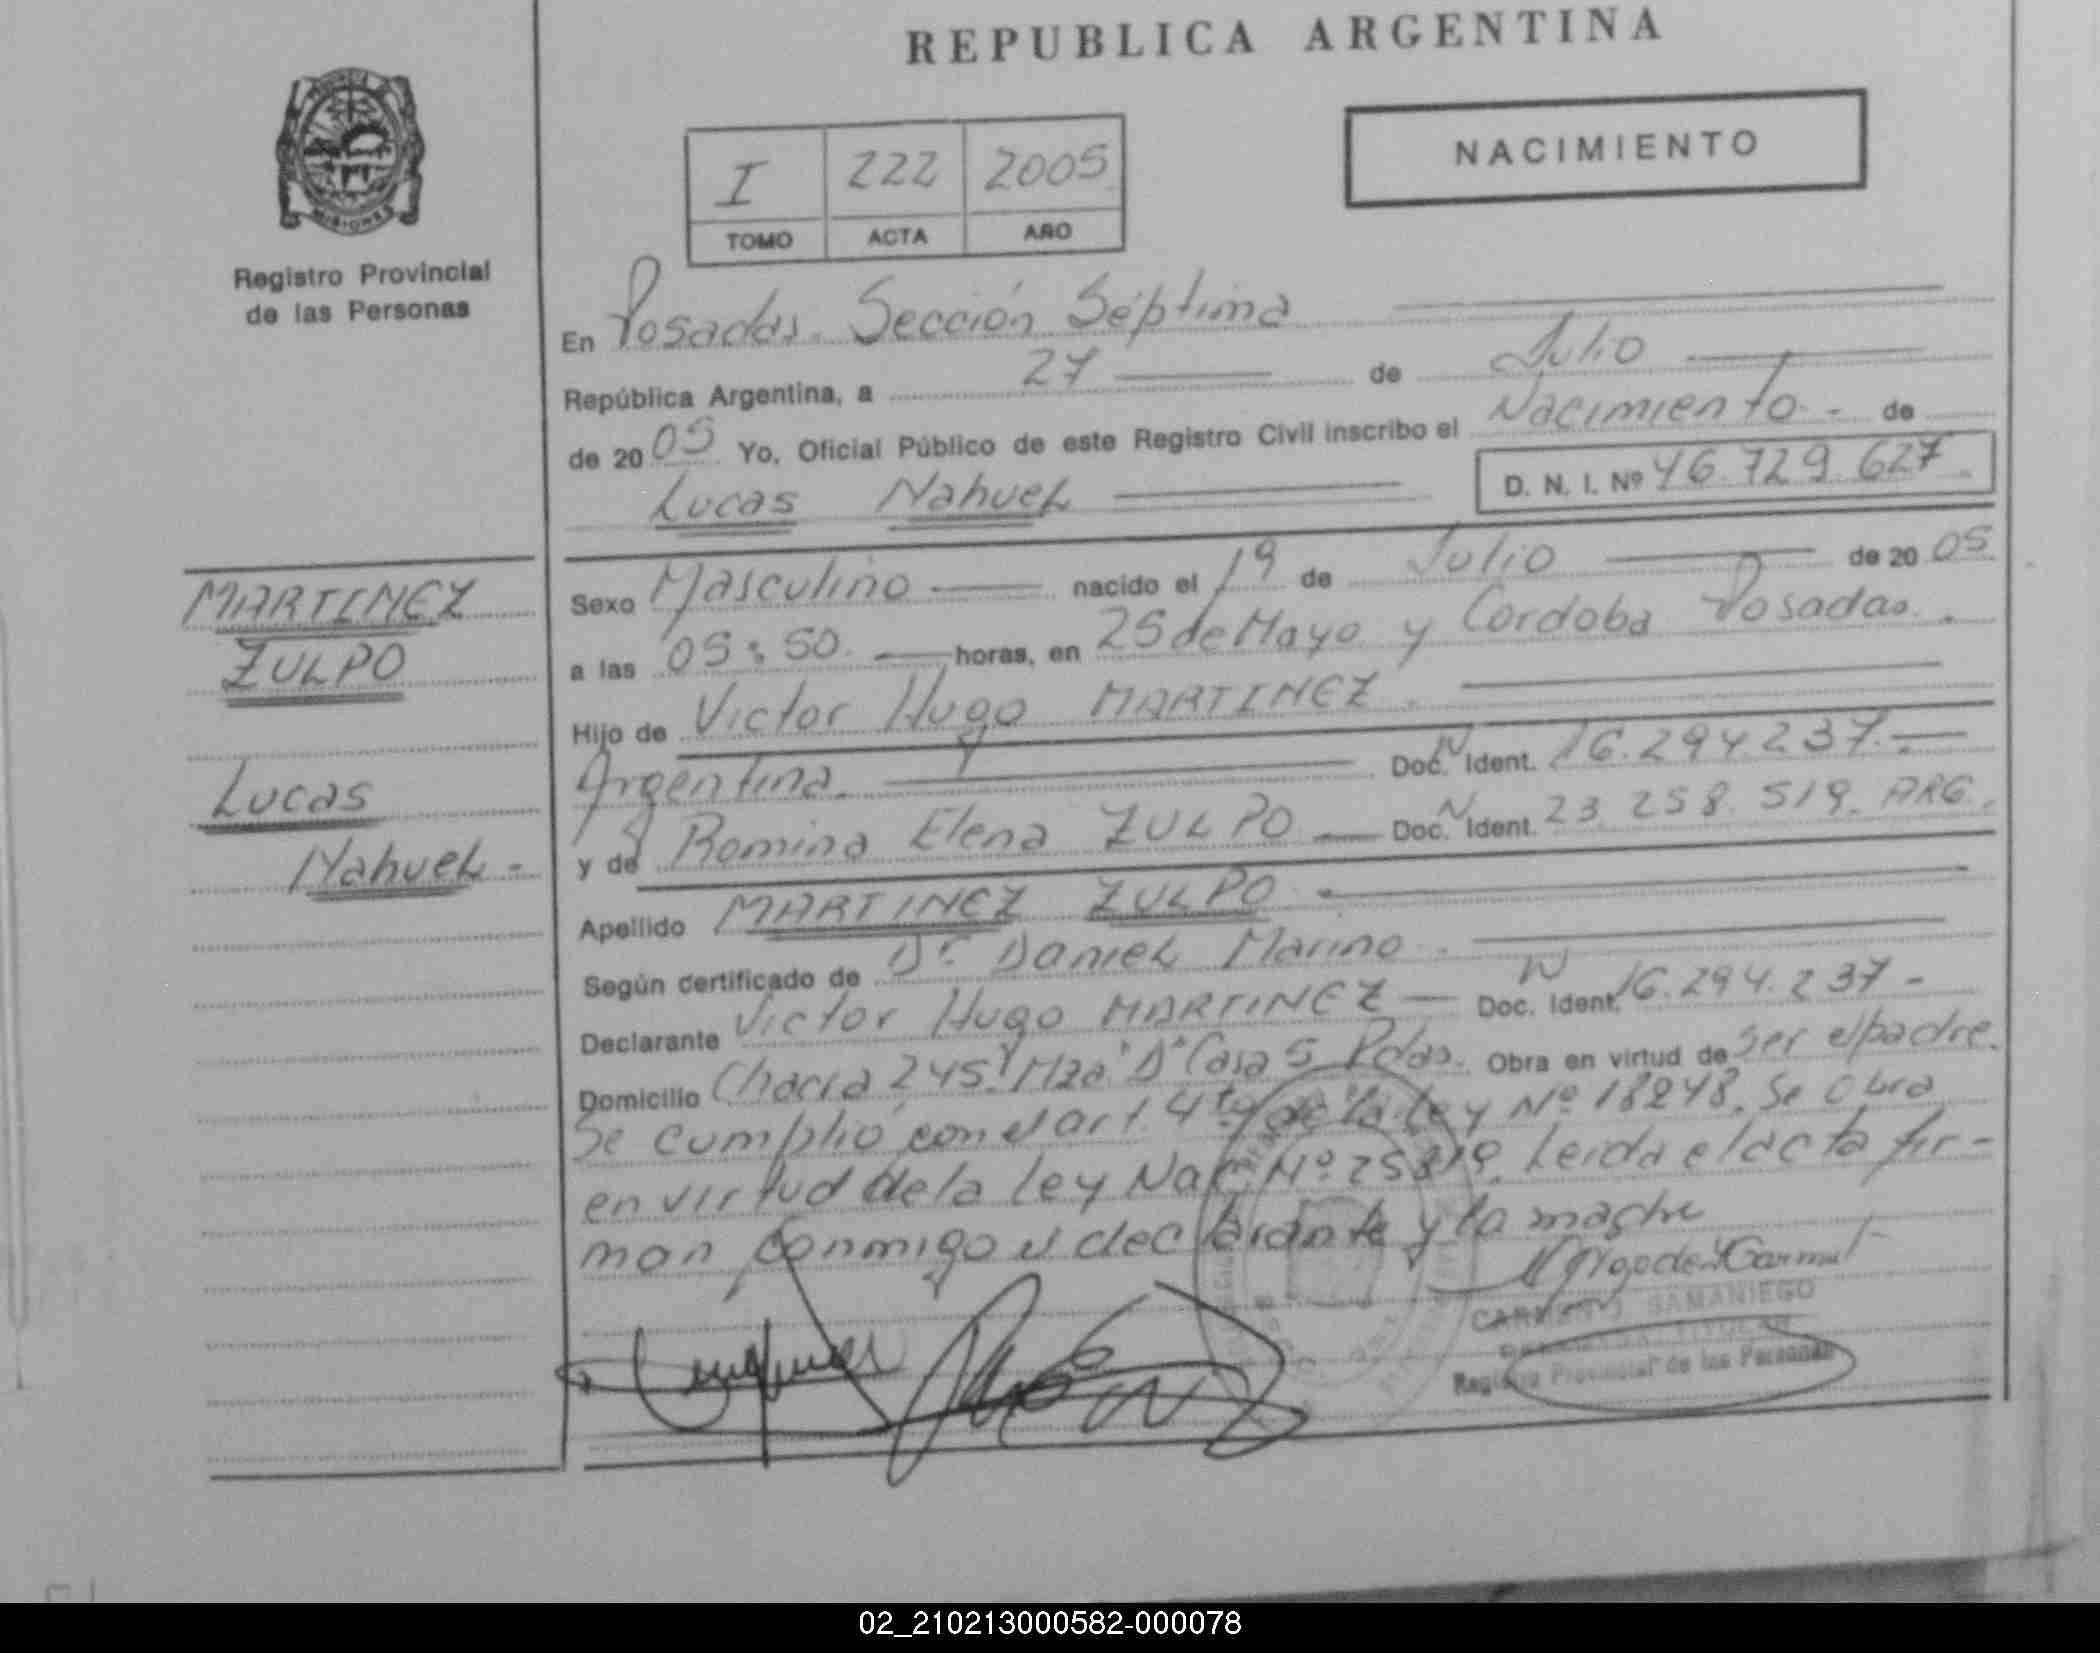 REPUBLICA ARGENTINA
NACIMIENTO
I 222 2005
TOMO ACTA AÑO
Registro Provincial
de las Personas
En Posadas. Sección Séptima
República Argentina, a 27 de Julio
de 2005 Yo, Oficial Público de este Registro Civil inscribo el Nacimiento.- de
Lucas Nahuel D. N. I. Nº 46.729.627.
MARTINEZ
ZULPO
Lucas
Nahuel.-
Sexo Masculino nacido el 19 de Julio de 2005.
a las 05:50. horas, en 25 de Mayo y Cordoba Posadas.
Hijo de Victor Hugo MARTINEZ.
Argentina. Doc. N Ident. 16.294.237.-
y de Romina Elena ZULPO Doc. N Ident. 23.258.519. ARG.
Apellido MARTINEZ ZULPO.
Según certificado de Dr. Daniel Marino.
Declarante Victor Hugo MARTINEZ Doc. Ident. N 16.294.237-
Domicilio Chacra 245 Mza "D" Casa 5 Pdas. Obra en virtud de ser el padre.
Se cumplió con el art. 4to de la Ley Nº 18248. Se Obra
en virtud de la Ley Nac Nº 25819. Leída el acta fir-
man conmigo el declarante y la madre
SAMANIEGO
Registro Provincial de las Personas
02_210213000582-000078